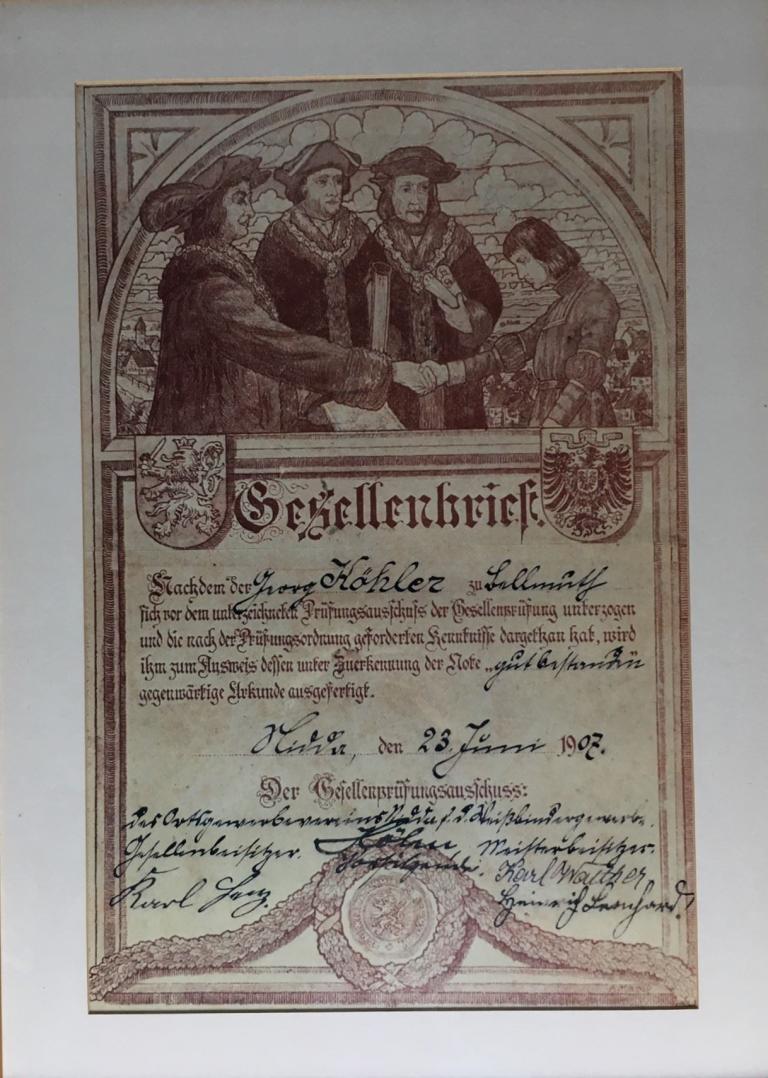 Gesellenbrief.
Nachdem der Georg Köhler zu Bellmuth
sich vor dem unterzeichneten Prüfungsausschuss der Gesellenprüfung unterzogen
und die nach der Prüfungsordnung geforderten Kenntnisse dargethan hat, wird
ihm zum Ausweis dessen unter Zuerkennung der Note „gut bestanden“
gegenwärtige Urkunde ausgefertigt.
Nidda, den 23. Juni 1907.
Der Gesellenprüfungsausschuss:
des Ortsgewerbevereins Nidda f. d. Weißbindergewerbe.
Gesellenbeisitzer. Vorsitzender. Meisterbeisitzer.
Karl Karl Walther
Heinrich Leonhard.